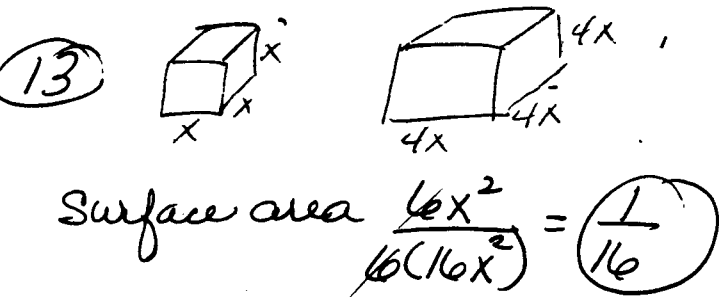 13
x
x
x
4x
4x
4x
Surface area 6x²/6(16x²) = 1/16